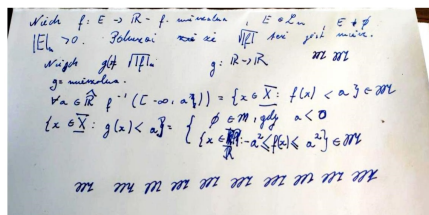 Niech f: E → ℝ - f. mierzalna, E ∈ 𝓛n, E ≠ ∅
|E|n > 0. Pokazać że √|f| też jest mierz.
Niech g = √|f|. g: ℝ → ℝ
g = mierzalna.
∀a ∈ ℝ̂ f⁻¹([-∞, a)) = {x ∈ X : f(x) < a} ∈ 𝔐
{x ∈ X : g(x) < a} = { ∅ ∈ 𝔐, gdy a < 0
{x ∈ ℝ : -a² ≤ f(x) ≤ a²} ∈ 𝔐
𝔐 𝔐 𝔐 𝔐 𝔐 𝔐 𝔐 𝔐 𝔐